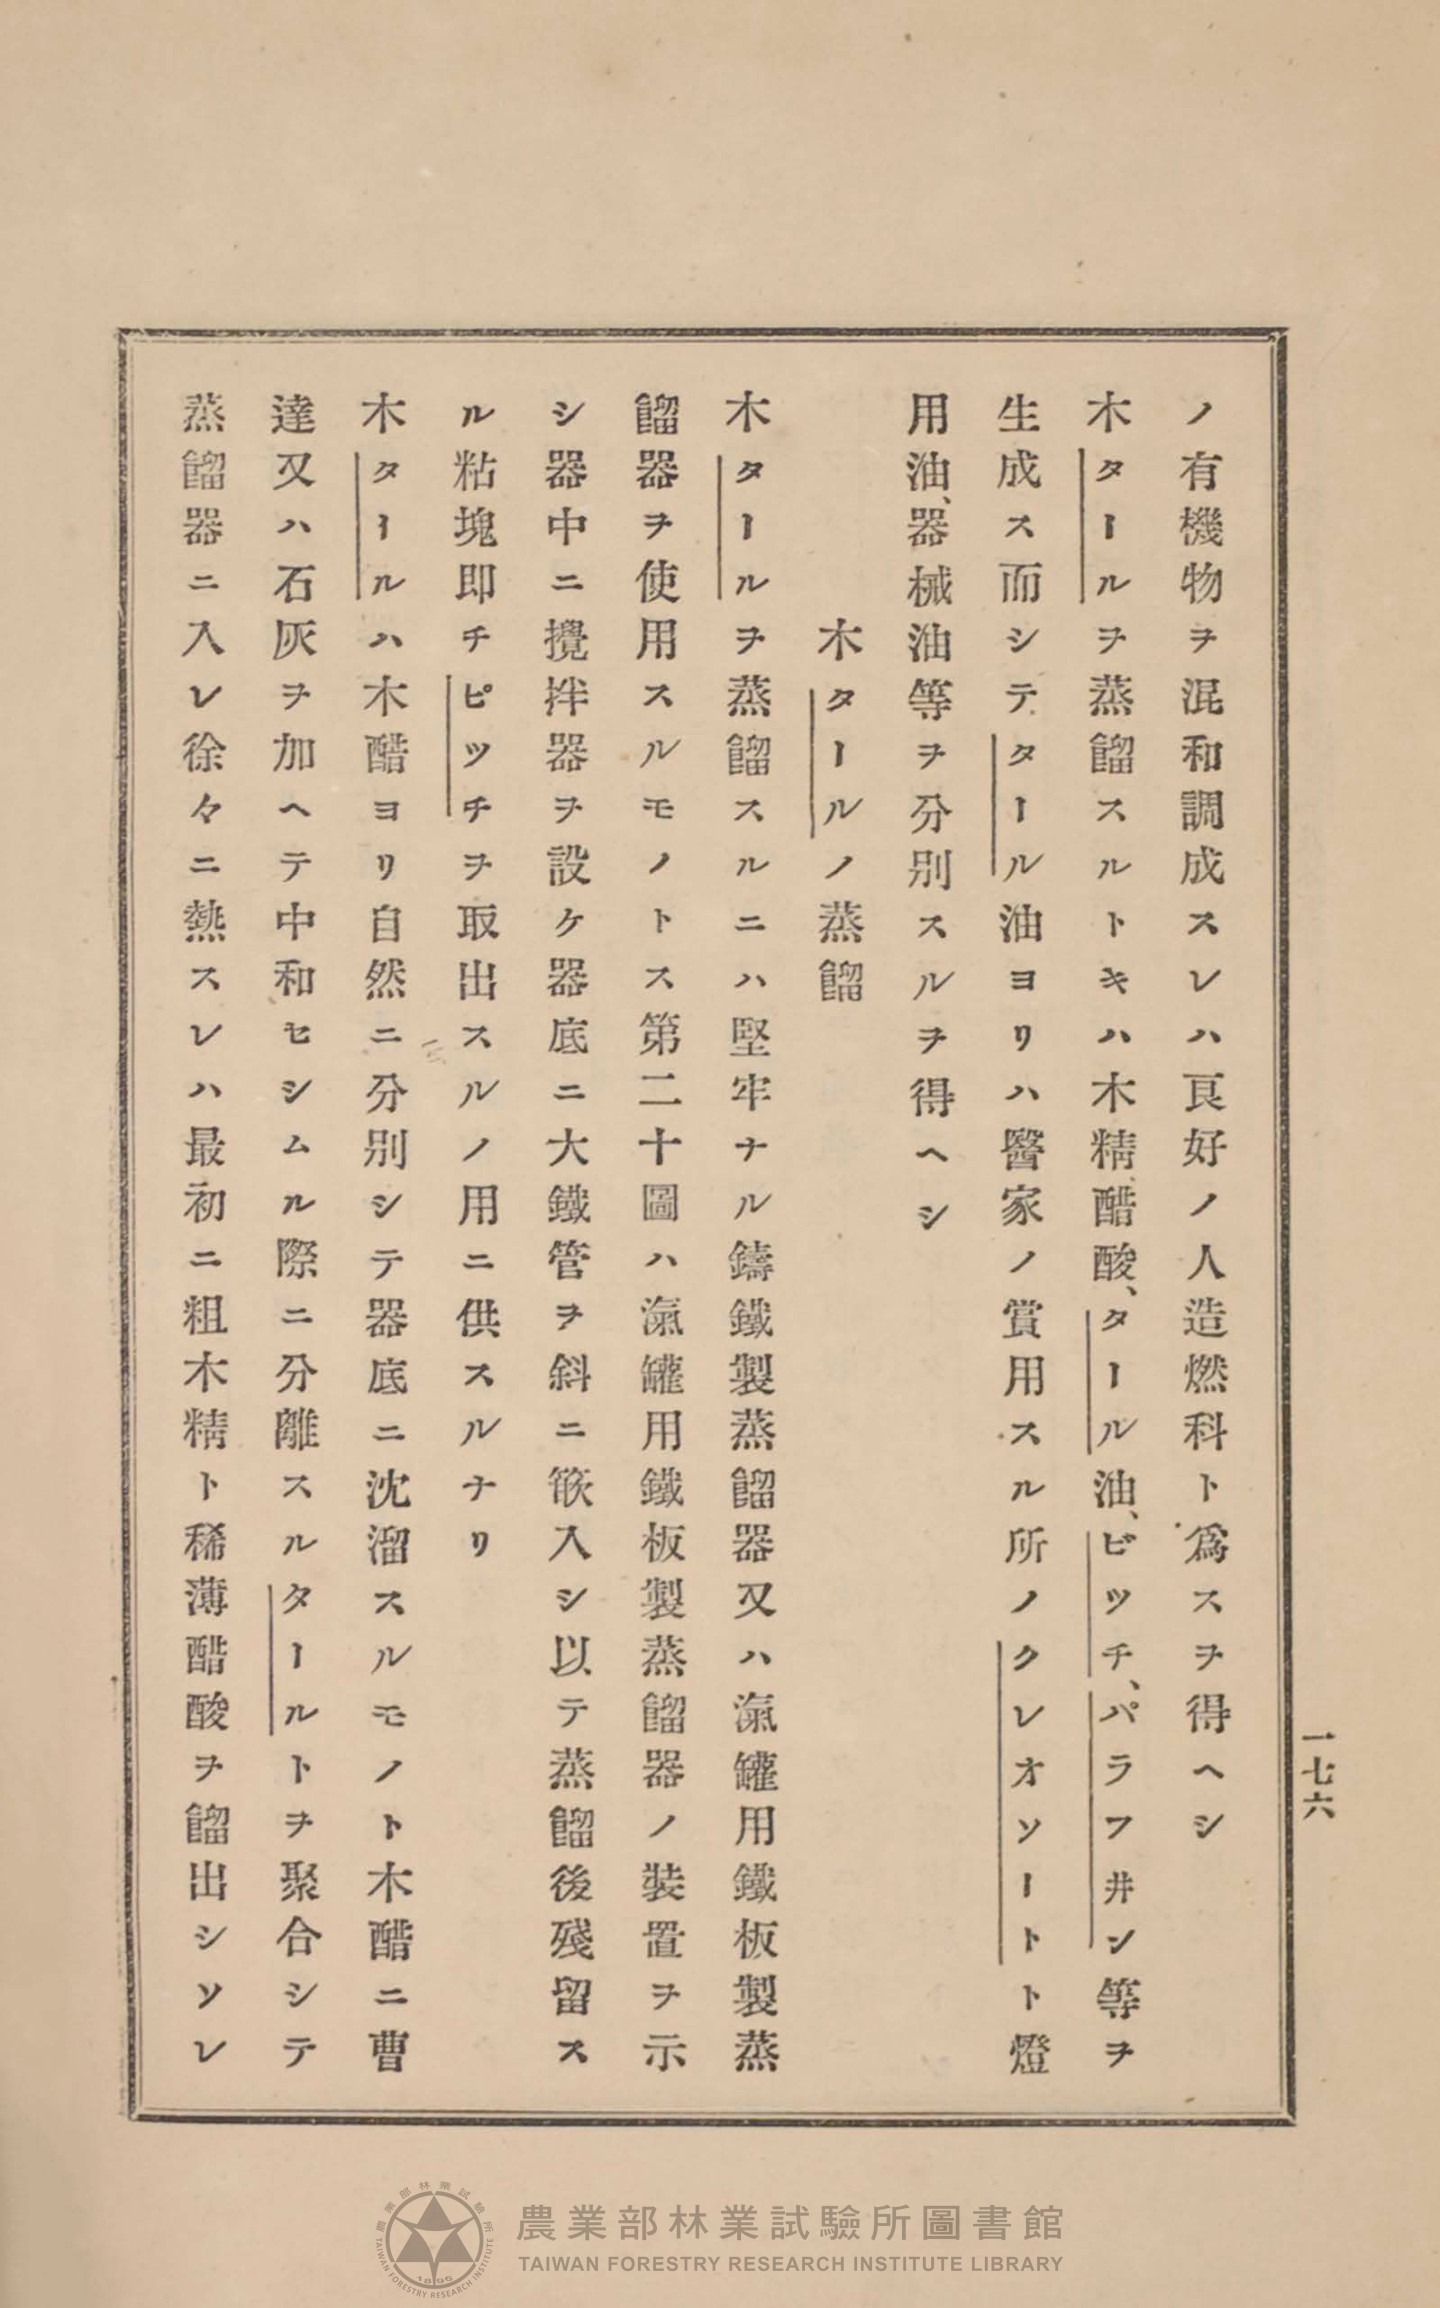 ノ有機物ヲ混和調成スレハ良好ノ人造燃科ト爲スヲ得ヘシ
木タールヲ蒸餾スルトキハ木精醋酸、タール油、ピッチ、パラフ井ン等ヲ
生成ス而シテタール油ヨリハ醫家ノ賞用スル所ノクレオソートト燈
用油、器械油等ヲ分別スルヲ得ヘシ
木タールノ蒸餾
木タールヲ蒸餾スルニハ堅牢ナル鑄鐵製蒸餾器又ハ滊罐用鐵板製蒸
餾器ヲ使用スルモノトス第二十圖ハ滊罐用鐵板製蒸餾器ノ裝置ヲ示
シ器中ニ攪拌器ヲ設ケ器底ニ大鐵管ヲ斜ニ篏入シ以テ蒸餾後殘留ス
ル粘塊即チピツチヲ取出スルノ用ニ供スルナリ
木タールハ木醋ヨリ自然ニ分別シテ器底ニ沈溜スルモノト木醋ニ曹
達又ハ石灰ヲ加ヘテ中和セシムル際ニ分離スルタールトヲ聚合シテ
蒸餾器ニ入レ徐々ニ熱スレハ最初ニ粗木精ト稀薄醋酸ヲ餾出シソレ
一七六
農業部林業試驗所圖書館
TAIWAN FORESTRY RESEARCH INSTITUTE LIBRARY
農業部林業試驗所
TAIWAN FORESTRY RESEARCH INSTITUTE
1896